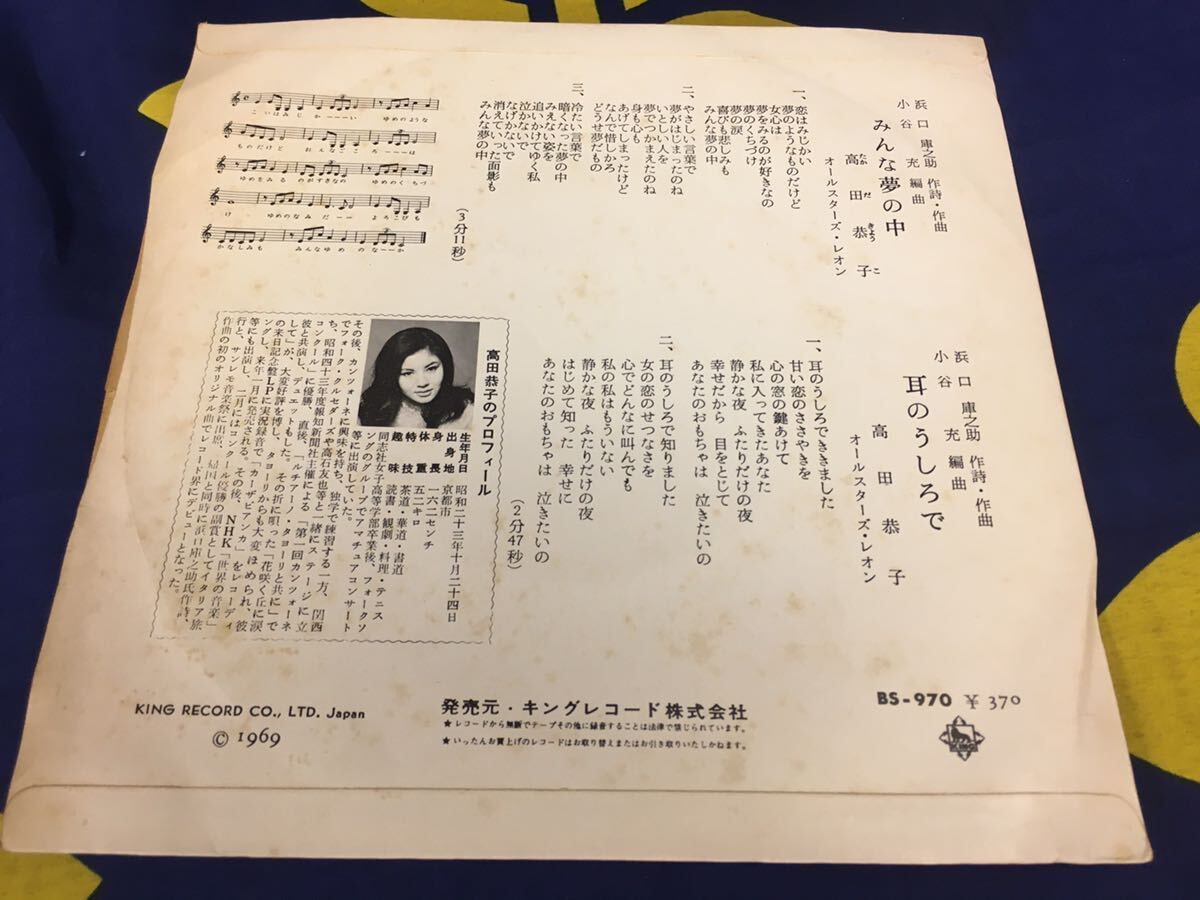 浜口庫之助 作詩・作曲
小谷 充 編曲
みんな夢の中
高田恭子
たか だ きょう こ
オールスターズ・レオン
一、恋はみじかい
夢のようなものだけど
女心は
夢をみるのが好きなの
夢のくちづけ
夢の涙
喜びも悲しみも
みんな夢の中
二、やさしい言葉で
夢がはじまったのね
いとしい人を
夢でつかまえたのね
身も心も
あげてしまったけど
なんで惜しかろ
どうせ夢だもの
三、冷たい言葉で
暗くなった夢の中
みえない姿を
追いかけてゆく私
泣かないで
なげかないで
消えていった面影も
みんな夢の中
(3分11秒)
こいはみじかーーーい ゆめのような
ものだけど おんなごころーーーは
ゆめをみる のがすきなの ゆめのくちづ
け ゆめのなみだーー よろこびも
かなしみも みんなゆめのなーーか
浜口庫之助 作詩・作曲
小谷 充 編曲
耳のうしろで
高田恭子
オールスターズ・レオン
一、耳のうしろでききました
甘い恋のささやきを
心の窓の鍵あけて
私に入ってきたあなた
静かな夜 ふたりだけの夜
幸せだから 目をとじて
あなたのおもちゃは 泣きたいの
二、耳のうしろで知りました
女の恋のせつなさを
心でどんなに叫んでも
私の私はもういない
静かな夜 ふたりだけの夜
はじめて知った 幸せに
あなたのおもちゃは 泣きたいの
(2分47秒)
高田恭子のプロフィール
生年月日 昭和二十三年十月二十四日
出身地 京都市
身長 一六二センチ
体重 五二キロ
特技 茶道・華道・書道
趣味 読書・観劇・料理・テニス
同志社女子高等学部卒業後、フォークソ
ングのグループでアマチュアコンサート
等に出演していた。
その後、カンツォーネに興味を持ち、独学で練習する一方、関西
でフォーク・クルセダーズや高石友也等と一緒にステージに立
ち、昭和四十三年度報知新聞社主催による「第一回カンツォーネ
コンクール」に優勝。直後、「ルチアーノ・タヨーリと共に」で
彼と共演し、デュエットもした。その折に唄った「花咲く丘に涙
して」が、大変好評を博し、タヨーリからも大変ほめられ、彼
の来日記念盤LPに実況録音で「カーザビアンカ」をレコーディ
ングし、来年一月に発売される。その後、NHK「世界の音楽」
等にも出演し、二月にはコンクール優勝の副賞としてイタリア旅
行と、サンレモ音楽祭に出席、帰国と同時に浜口庫之助氏作詩、
作曲の初のオリジナル曲でレコード界にデビューとなった。
KING RECORD CO., LTD. Japan
© 1969
発売元・キングレコード株式会社
★レコードから無断でテープその他に録音することは法律で禁じられています。
★いったんお買上げのレコードはお取り替えまたはお引き取りいたしかねます。
BS-970 ¥370
KING